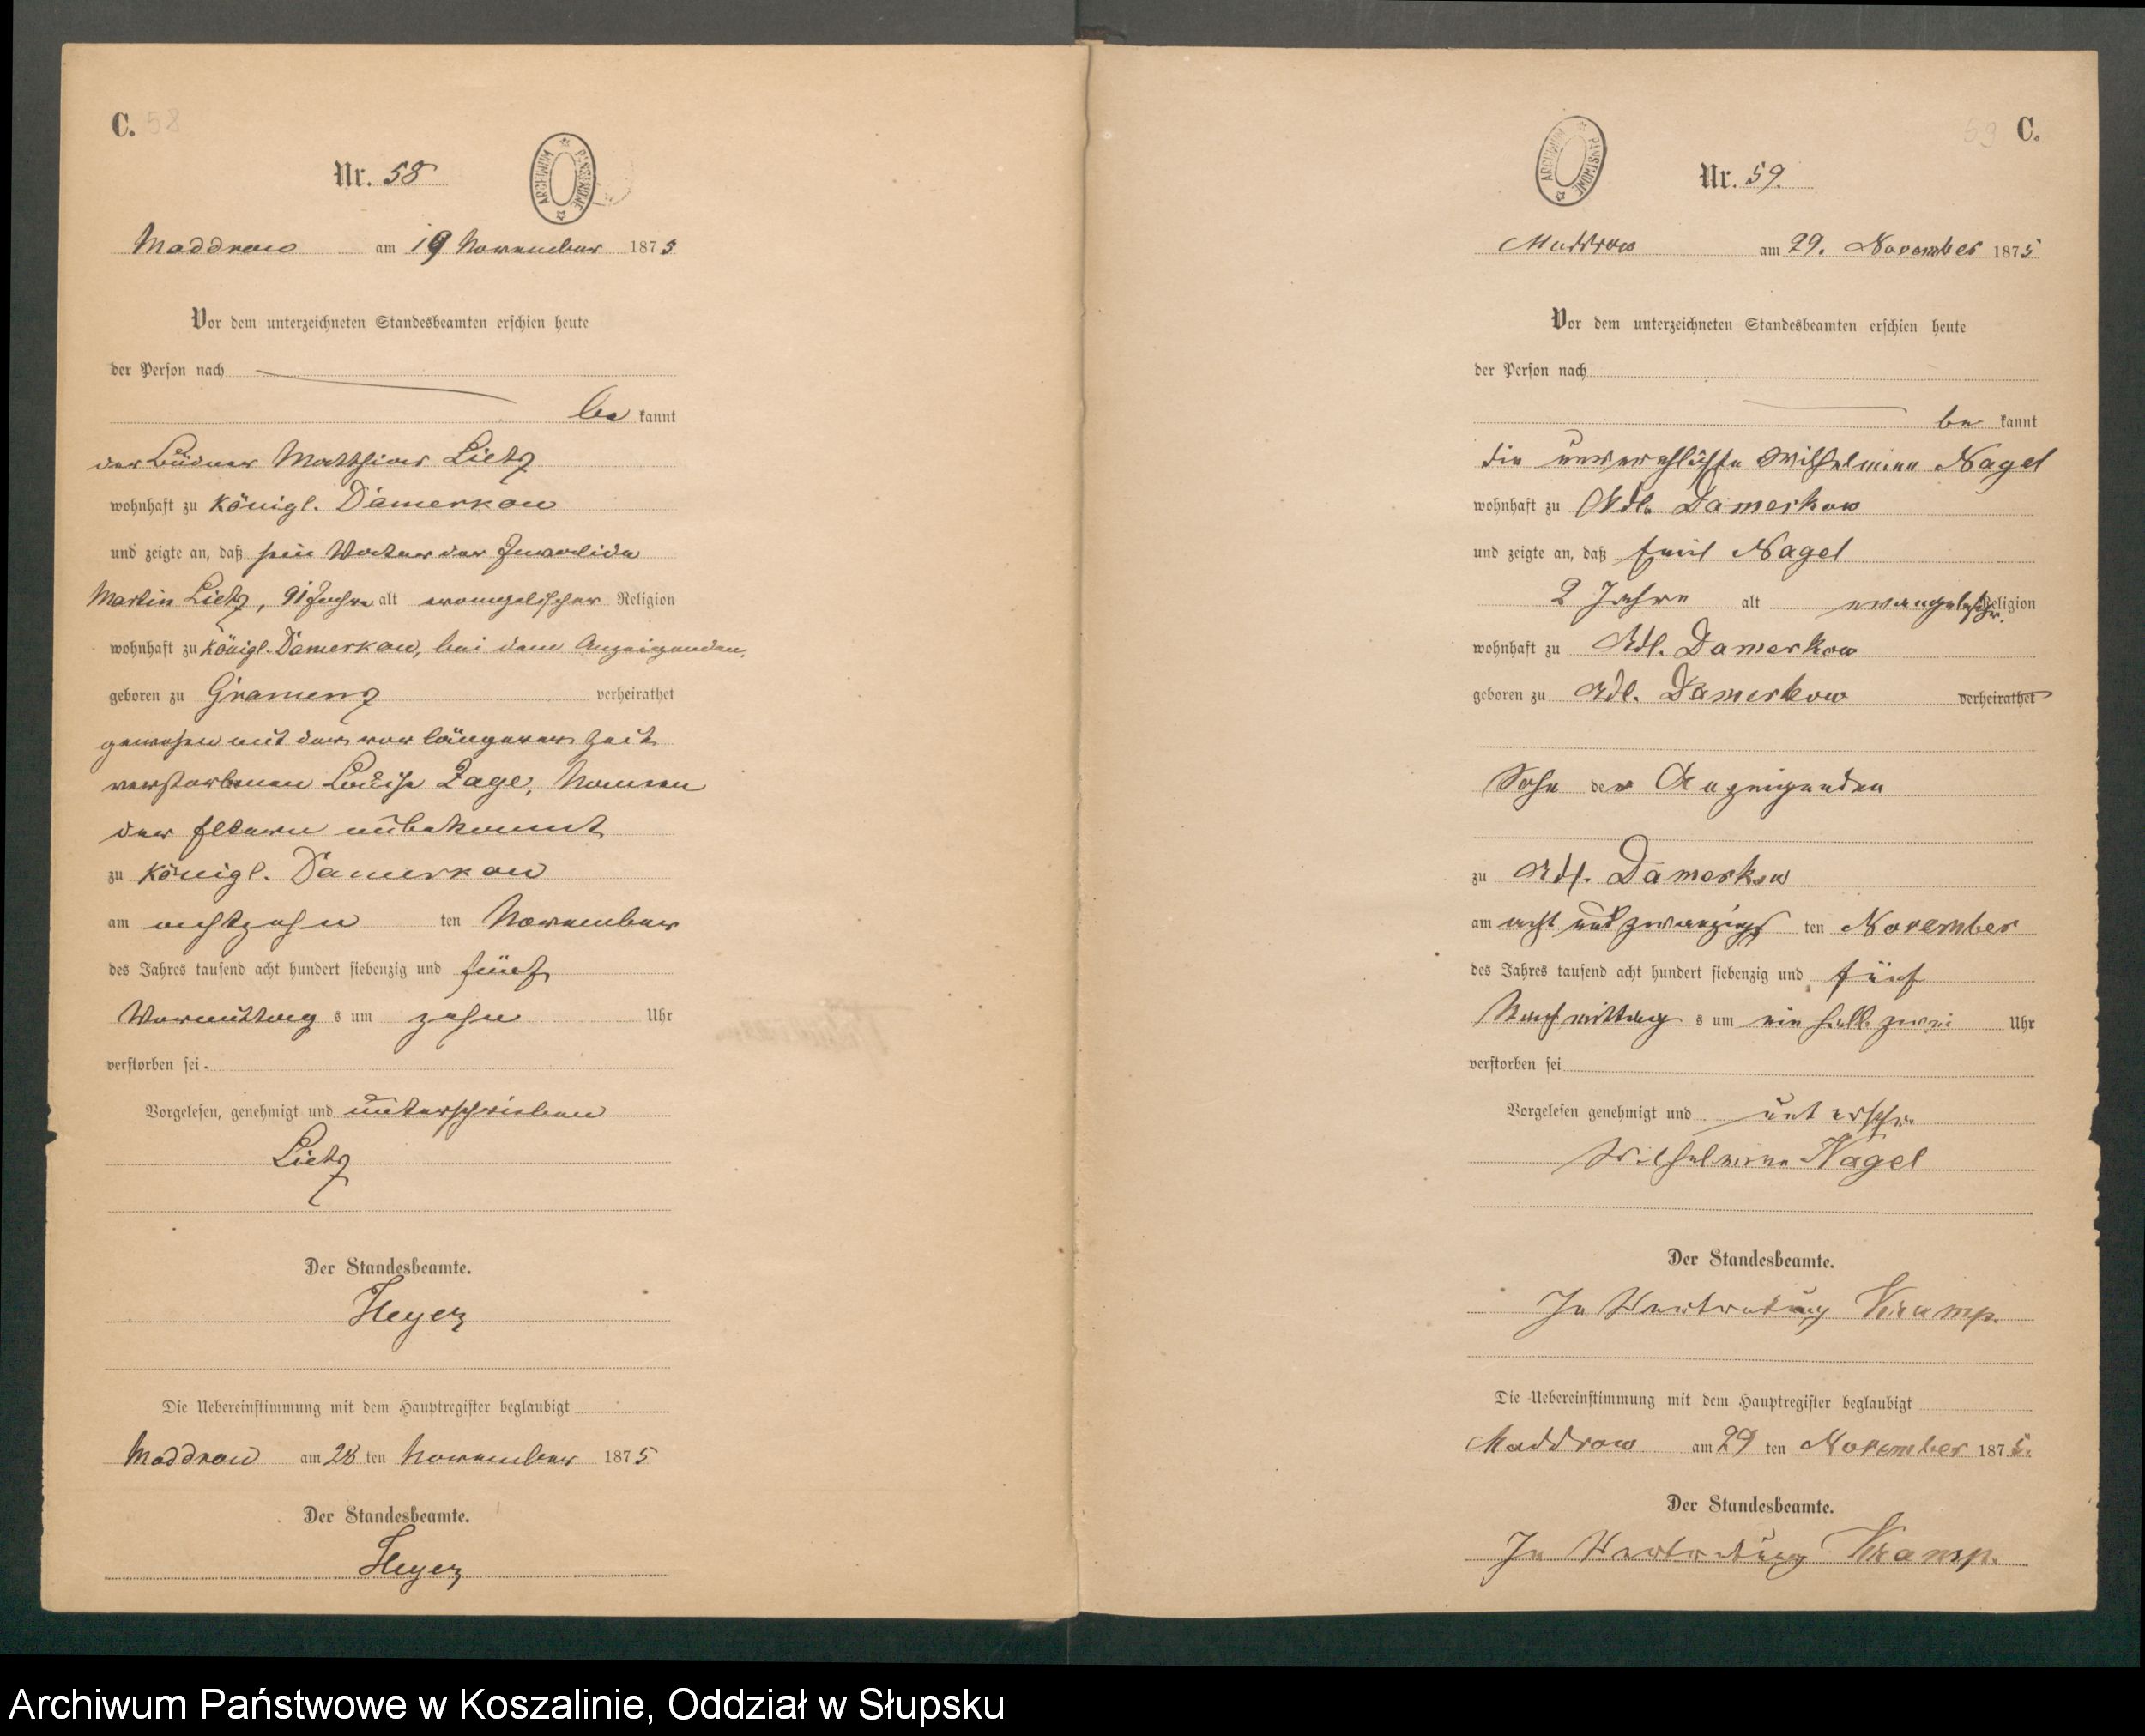 C. 58
Nr. 58
ARCHIWUM PAŃSTWOWE
Maddrow am 19 November 1875
Vor dem unterzeichneten Standesbeamten erschien heute
der Person nach
be kannt
der Büdner Matthias Lietz
wohnhaft zu Königl. Damerkow
und zeigte an, daß sein Vater der Invalide
Martin Lietz, 91 Jahre alt evangelischer Religion
wohnhaft zu Königl. Damerkow, bei dem Anzeigenden,
geboren zu Gramenz verheirathet
gewesen mit der vor längerer Zeit
verstorbenen Louise Zage, Namen
der Eltern unbekannt
zu Königl. Damerkow
am achtzehn ten November
des Jahres tausend acht hundert siebenzig und fünf
Vormittag s um zehn Uhr
verstorben sei.
Vorgelesen, genehmigt und unterschrieben
Lietz
Der Standesbeamte.
Heyer
Die Uebereinstimmung mit dem Hauptregister beglaubigt
Maddrow am 28 ten November 1875
Der Standesbeamte.
Heyer
59 C.
ARCHIWUM PAŃSTWOWE
Nr. 59.
Maddrow am 29. November 1875
Vor dem unterzeichneten Standesbeamten erschien heute
der Person nach
be kannt
die unverehlichte Wilhelmine Nagel
wohnhaft zu Adl. Damerkow
und zeigte an, daß Emil Nagel
2 Jahre alt evangelischer Religion
wohnhaft zu Adl. Damerkow
geboren zu Adl. Damerkow verheirathet
Sohn der Anzeigenden
zu Adl. Damerkow
am acht und zwanzigs ten November
des Jahres tausend acht hundert siebenzig und fünf
Nachmittag s um ein halb zwei Uhr
verstorben sei
Vorgelesen genehmigt und unterschr.
Wilhelmine Nagel
Der Standesbeamte.
In Vertretung Kramp.
Die Uebereinstimmung mit dem Hauptregister beglaubigt
Maddrow am 29 ten November 1875.
Der Standesbeamte.
In Vertretung Kramp.
Archiwum Państwowe w Koszalinie, Oddział w Słupsku